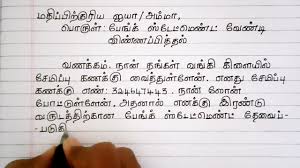 மதிப்பிற்குரிய ஐயா/அம்மா,
பொருள்: பேங்க் ஸ்டேட்மெண்ட் வேண்டி
விண்ணப்பித்தல்
வணக்கம். நான் தங்கள் வங்கி கிளையில்
சேமிப்பு கணக்கு வைத்துள்ளேன். எனது சேமிப்பு
கணக்கு எண்: 324647443. நான் லோன்
போட்டுள்ளேன். அதனால் எனக்கு இரண்டு
வருடத்திற்கான பேங்க் ஸ்டேட்மெண்ட் தேவைப்-
படுகி